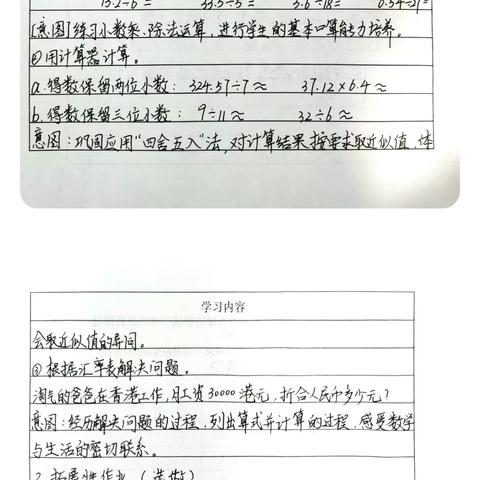 13.2÷6= 33.5÷5= 3.6÷18= 0.54÷27=
[意图]练习小数乘、除法运算,进行学生的基本口算能力培养。
②用计算器计算。
a.得数保留两位小数: 324.57÷7≈ 37.12×6.4≈
b.得数保留三位小数: 9÷11≈ 32÷6≈
意图:巩固应用“四舍五入”法,对计算结果按要求取近似值,体
学习内容
会取近似值的异同。
③根据汇率表解决问题。
淘气的爸爸在香港工作,月工资30000港元,折合人民币多少元?
意图:经历解决问题的过程,列出算式并计算的过程,感受数学
与生活的密切联系。
2.拓展性作业(选做)